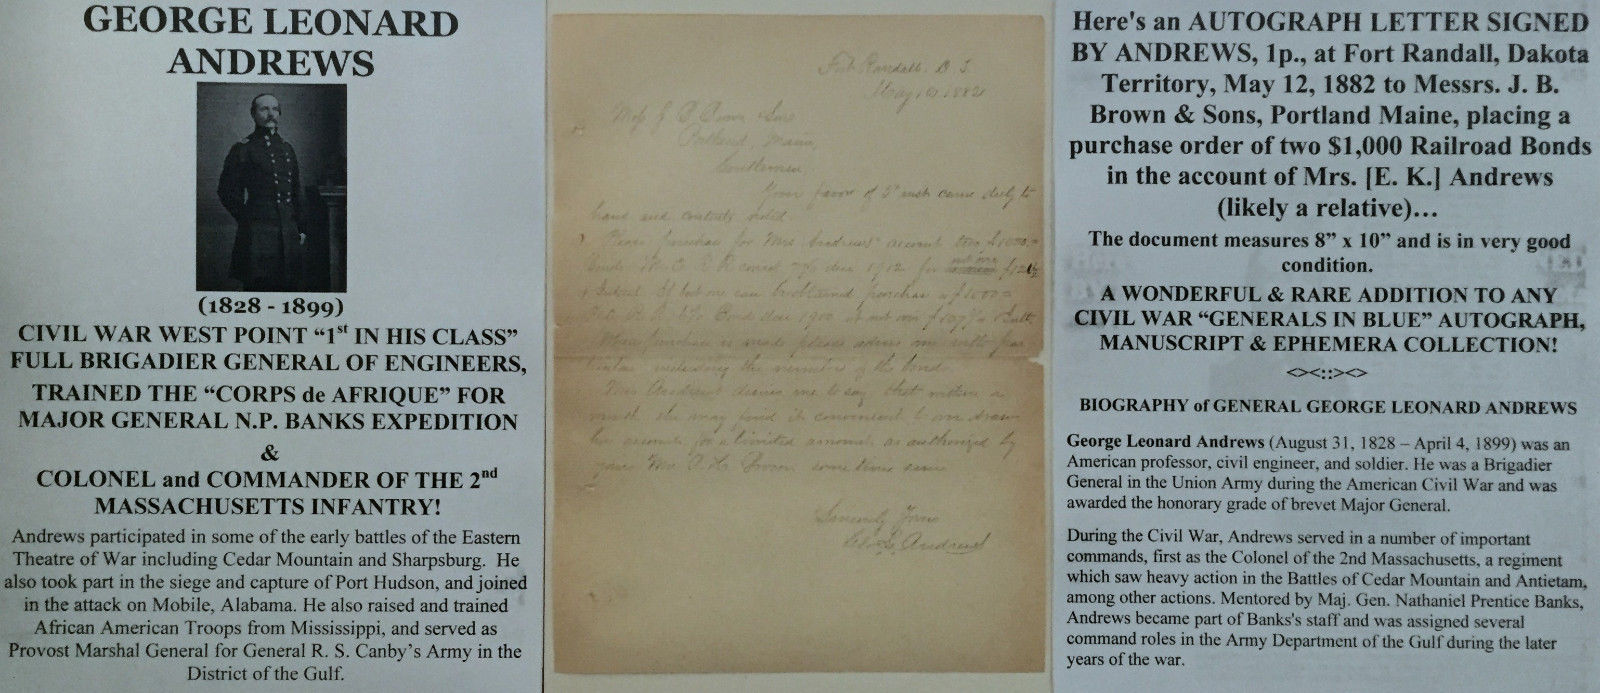 GEORGE LEONARD
ANDREWS
(1828 - 1899)
CIVIL WAR WEST POINT “1st IN HIS CLASS”
FULL BRIGADIER GENERAL OF ENGINEERS,
TRAINED THE “CORPS de AFRIQUE” FOR
MAJOR GENERAL N.P. BANKS EXPEDITION
&
COLONEL and COMMANDER OF THE 2nd
MASSACHUSETTS INFANTRY!
Andrews participated in some of the early battles of the Eastern
Theatre of War including Cedar Mountain and Sharpsburg. He
also took part in the siege and capture of Port Hudson, and joined
in the attack on Mobile, Alabama. He also raised and trained
African American Troops from Mississippi, and served as
Provost Marshal General for General R. S. Canby’s Army in the
District of the Gulf.
Fort Randall. D. T.
May 1882
Portland, Maine,
Gentlemen
Your favor of inst came duly to
hand and contents noted
Please purchase for Mrs Andrews' account two $1000
due 1912 for
can be obtained purchase a $1000
Bond due 1900
purchase is made please advise me with par
ticulars including the number of the bond.
Mrs Andrews desires me to say that within a
month she may find it convenient to
her account for a limited amount as authorized by
your Mr. some time since
Sincerely Yours
Geo. L. Andrews
Here's an AUTOGRAPH LETTER SIGNED
BY ANDREWS, 1p., at Fort Randall, Dakota
Territory, May 12, 1882 to Messrs. J. B.
Brown & Sons, Portland Maine, placing a
purchase order of two $1,000 Railroad Bonds
in the account of Mrs. [E. K.] Andrews
(likely a relative)…
The document measures 8” x 10” and is in very good
condition.
A WONDERFUL & RARE ADDITION TO ANY
CIVIL WAR “GENERALS IN BLUE” AUTOGRAPH,
MANUSCRIPT & EPHEMERA COLLECTION!
<><::><>
BIOGRAPHY of GENERAL GEORGE LEONARD ANDREWS
George Leonard Andrews (August 31, 1828 – April 4, 1899) was an
American professor, civil engineer, and soldier. He was a Brigadier
General in the Union Army during the American Civil War and was
awarded the honorary grade of brevet Major General.
During the Civil War, Andrews served in a number of important
commands, first as the Colonel of the 2nd Massachusetts, a regiment
which saw heavy action in the Battles of Cedar Mountain and Antietam,
among other actions. Mentored by Maj. Gen. Nathaniel Prentice Banks,
Andrews became part of Banks's staff and was assigned several
command roles in the Army Department of the Gulf during the later
years of the war.